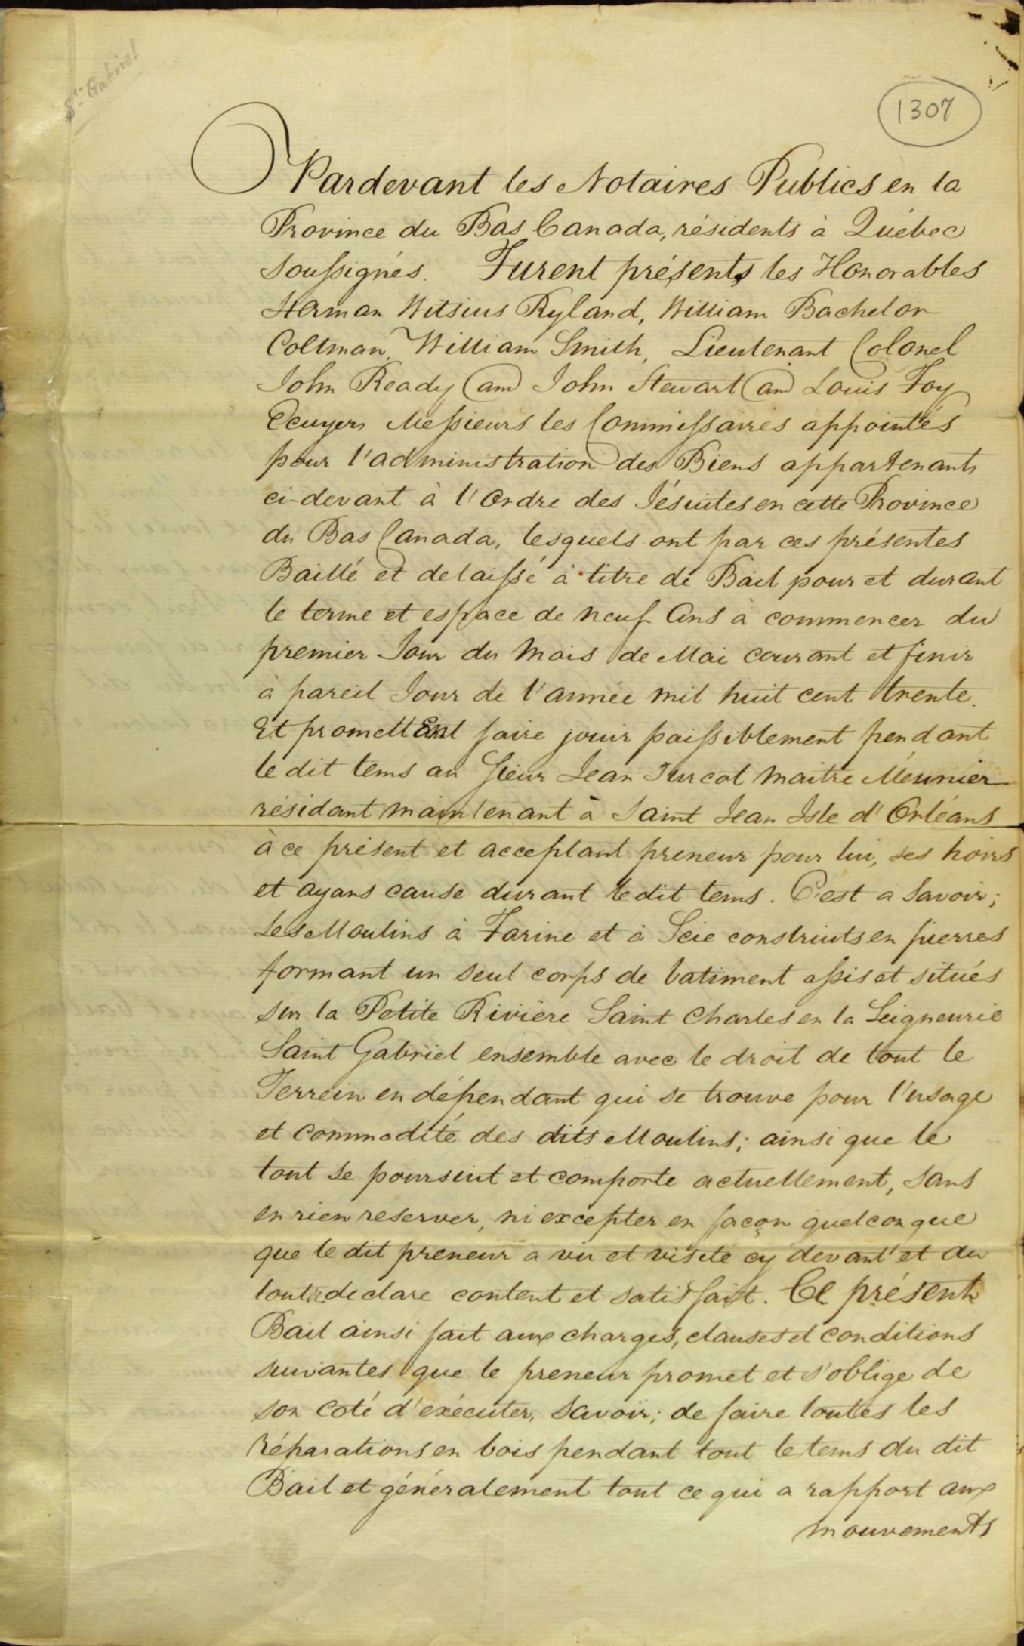 St. Gabriel
1307
Pardevant les Notaires Publics en la
Province du Bas Canada, résidents à Québec
Soussignés. Furent présents les Honorables
Herman Witsius Ryland, William Bachelor
Coltman, William Smith, Lieutenant Colonel
John Ready and John Stewart and Louis Foy
Ecuyers Messieurs les Commissaires appointés
pour l'administration des Biens appartenants
ci-devant à l'Ordre des Jésuites en cette Province
du Bas Canada, lesquels ont par ces présentes
Baillé et delaissé à titre de Bail pour et durant
le terme et espace de neuf Ans à commencer du
premier Jour du Mois de Mai courant et finir
à pareil Jour de l'année mil huit cent trente.
Et promettent faire jouir paissiblement pendant
le dit tems au Sieur Jean Turcot Maitre Meunier
résidant maintenant à Saint Jean Isle d'Orléans
à ce présent et acceptant preneur pour lui, ses hoirs
et ayans cause durant le dit tems. C'est a Savoir;
Les Moulins à Farine et à Scie construits en pierres
formant un seul corps de batiment assis et situés
sur la Petite Rivière Saint Charles en la Seigneurie
Saint Gabriel ensemble avec le droit de tout le
Terrein en dépendant qui se trouve pour l'usage
et commodité des dits Moulins; ainsi que le
tout se poursuit et comporte actuellement, sans
en rien reserver, ni excepter en façon quelconque
que le dit preneur a vu et visité cy devant et du
tout se declare content et satisfait. Ce présent
Bail ainsi fait aux charges, clauses et conditions
suivantes que le preneur promet et s'oblige de
son coté d'exécuter, Savoir; de faire toutes les
réparations en bois pendant tout le tems du dit
Bail et généralement tout ce qui a rapport aux
mouvements